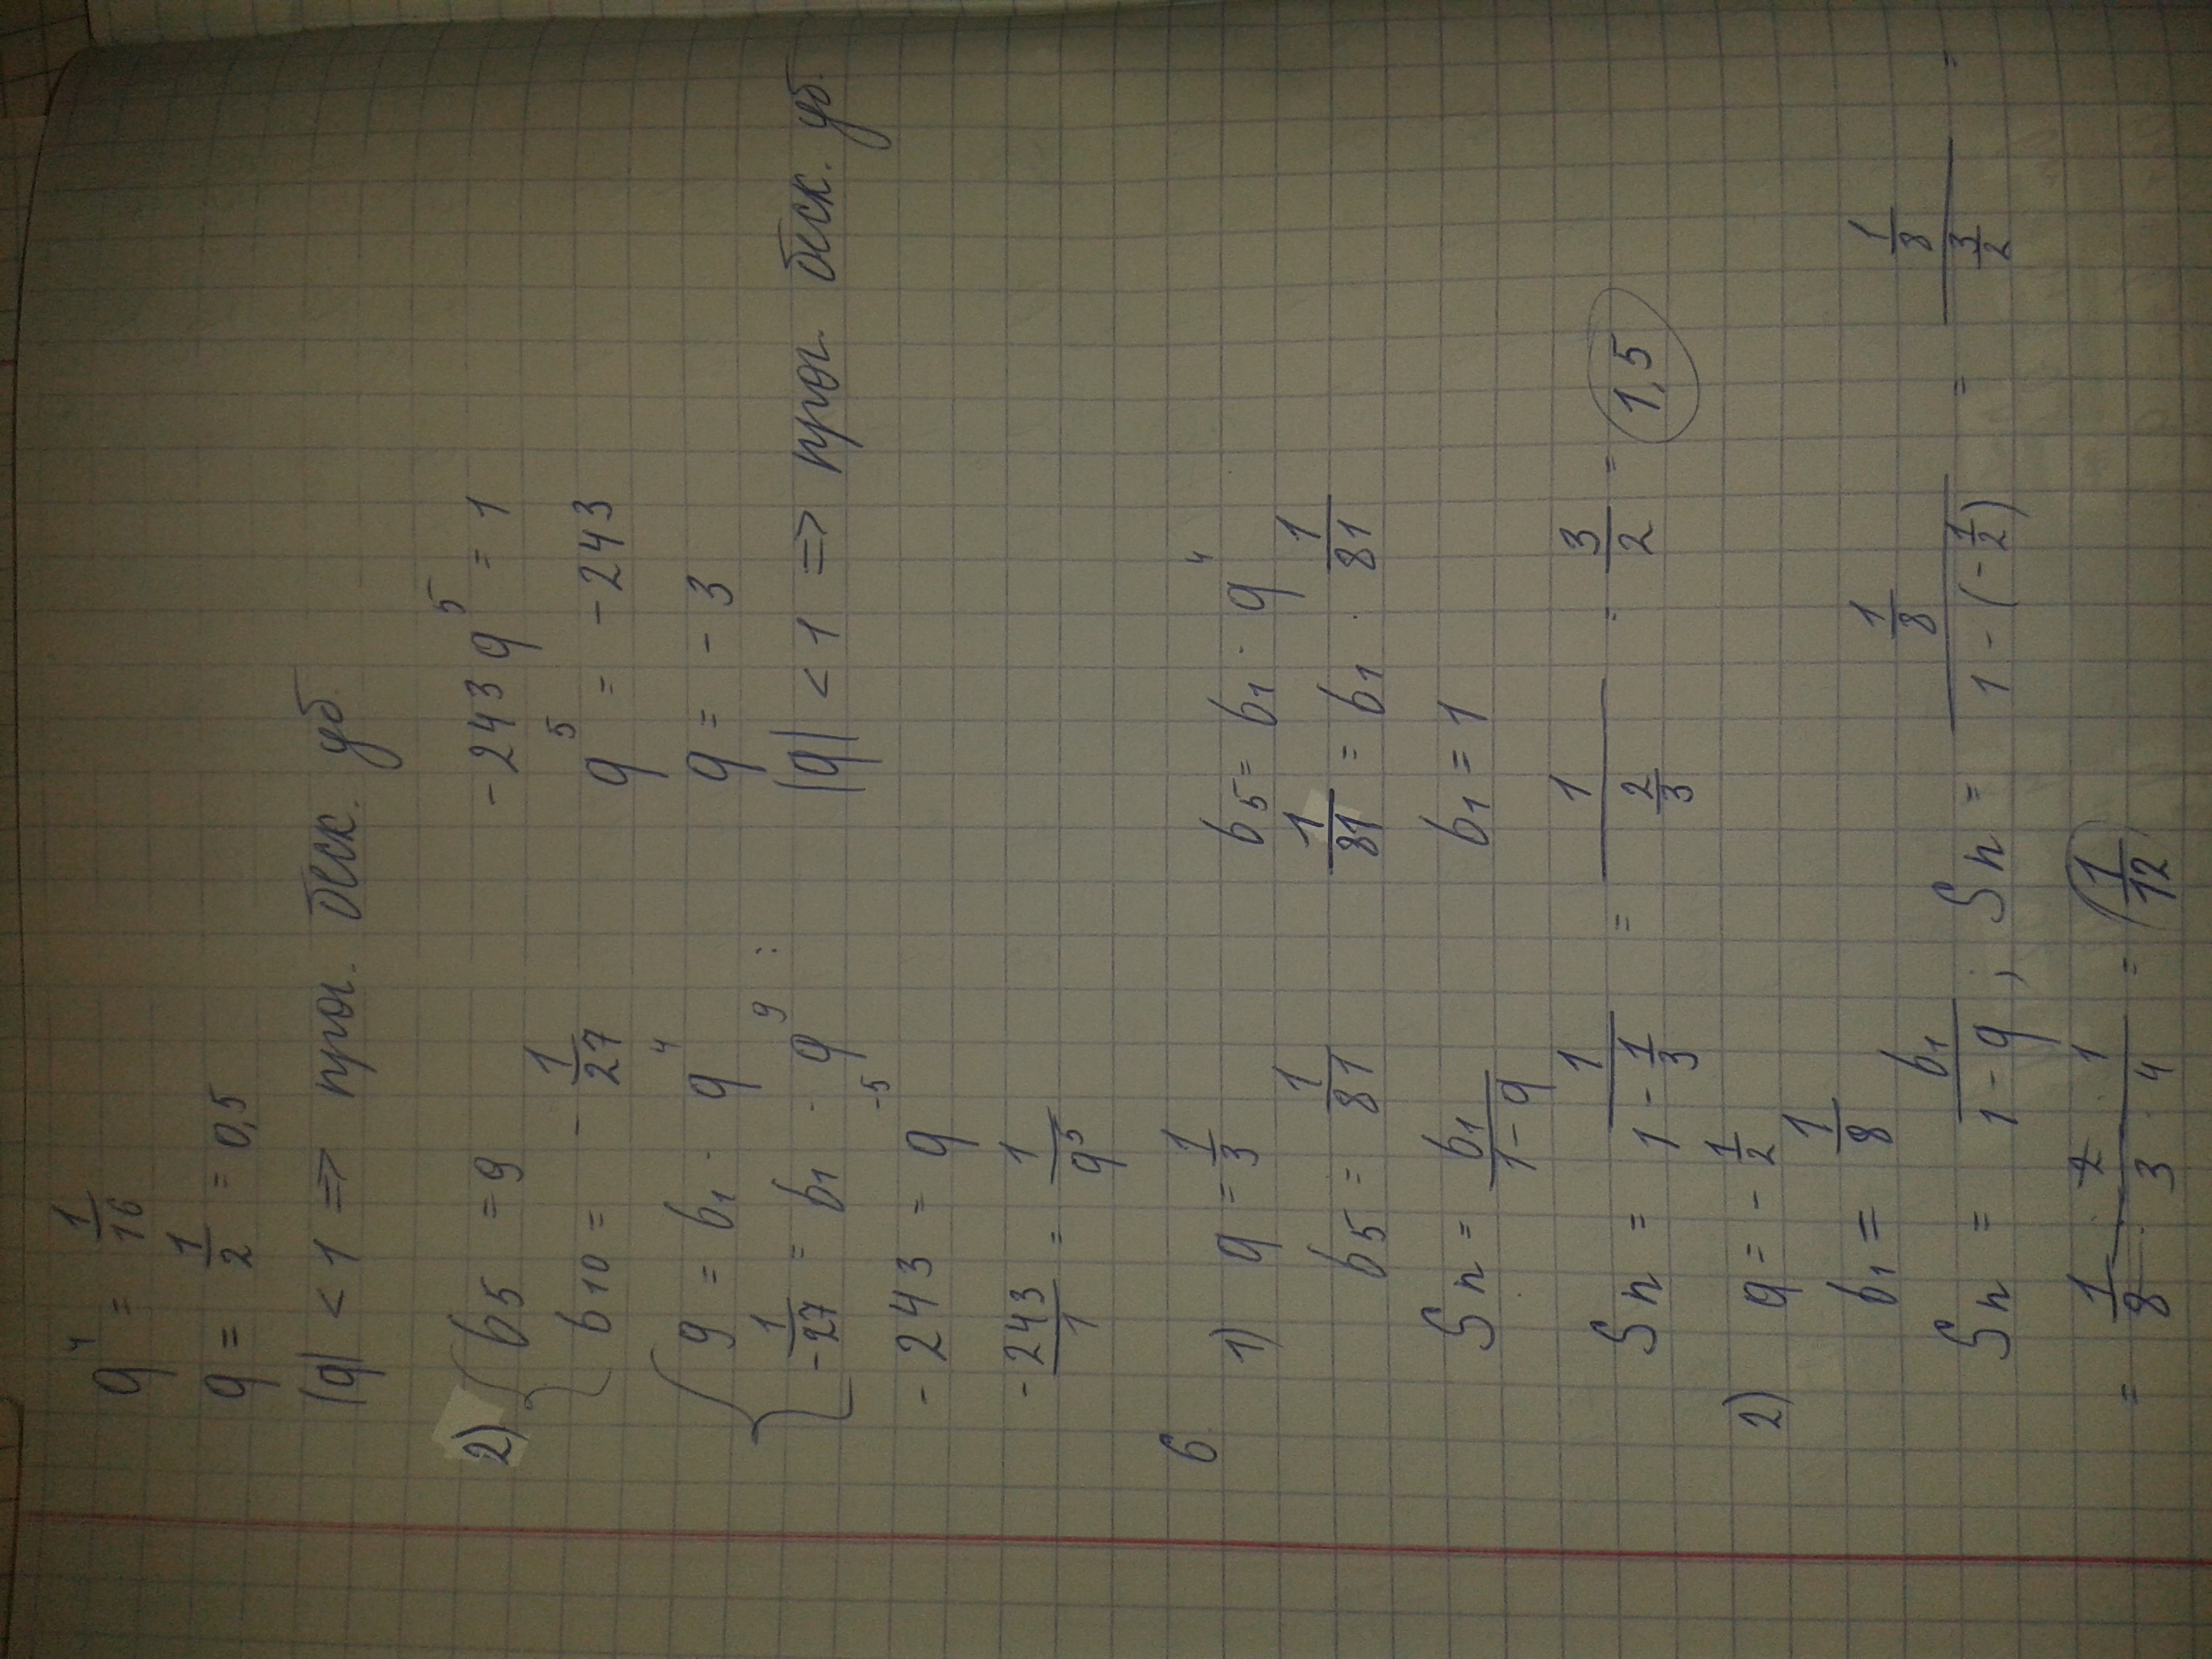 q⁴ = 1/16
q = 1/2 = 0,5
|q| < 1 => прог. беск. уб.
2) { b5 = 9
b10 = - 1/27
{ 9 = b1 · q⁴
-1/27 = b1 · q⁹ :
- 243 = q⁻⁵
- 243/1 = 1/q⁵
- 243 q⁵ = 1
q⁵ = - 243
q = - 3
|q| < 1 => прог. беск. уб.
6
1) q = 1/3
b5 = 1/81
b5 = b1 · q⁴
1/81 = b1 · 1/81
b1 = 1
Sn = b1/1-q
Sn = 1/(1 - 1/3) = 1/(2/3) · 3/2 = 1,5
2) q = - 1/2
b1 = 1/8
Sn = b1/1-q ; Sn = (1/8)/(1-(-1/2)) = (1/8)/(3/2) =
= 1/8 · 2/3 1 4 = 1/12